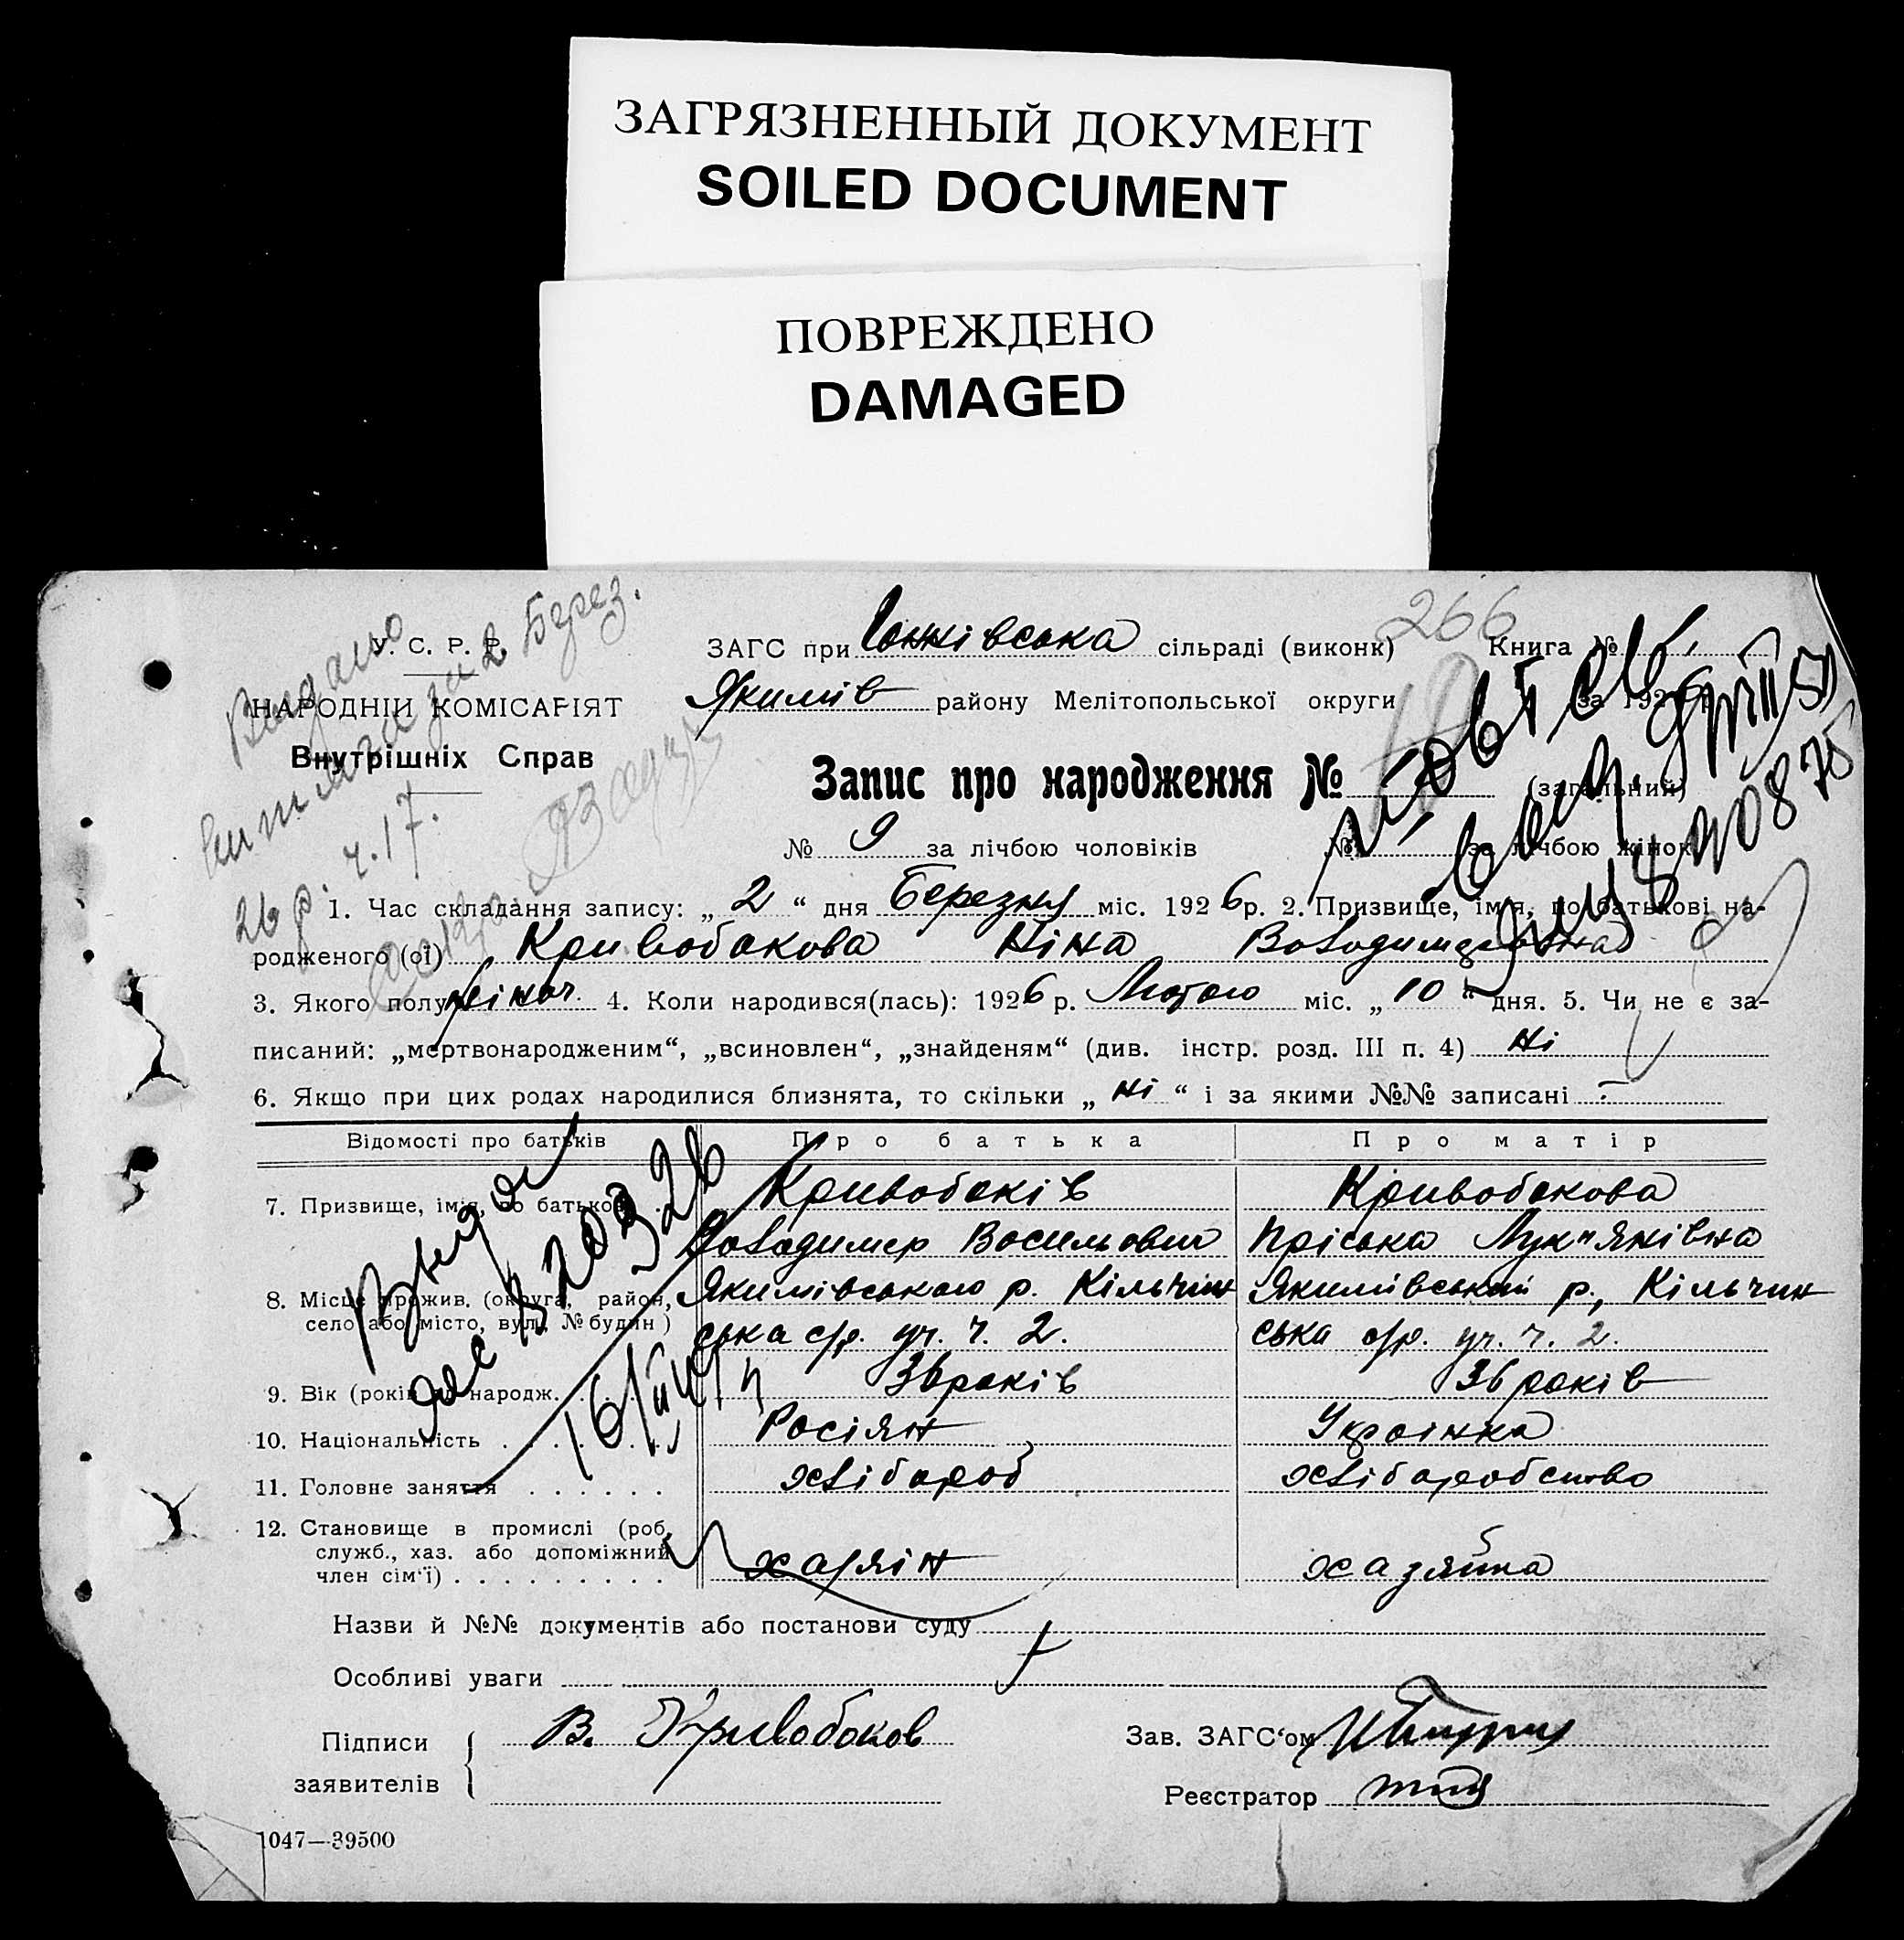 ЗАГРЯЗНЕННЫЙ ДОКУМЕНТ
SOILED DOCUMENT
ПОВРЕЖДЕНО
DAMAGED
266
У. С. Р. Р.
НАРОДНІЙ КОМІСАРІЯТ
Внутрішніх Справ
Видано
за 2 Берез.
ч. 17.
26 р.
ЗАГС при сільраді (виконк) Книга №
Якимів району Мелітопольської округи за 192
Запис про народження № 10 (загальний)
№ 9 за лічбою чоловіків № за лічбою жінок
1. Час складання запису: „ 2 “ дня Березня міс. 1926 р. 2. Призвище, імя, по батькові на-
родженого (ої) Кривобокова Ніна Володимировна
3. Якого полу жіноч. 4. Коли народився(лась): 1926 р. Лютого міс. „ 10 “ дня. 5. Чи не є за-
писаний: „мертвонародженим“, „всиновлен“, „знайденям“ (див. інстр. розд. III п. 4) Ні
6. Якщо при цих родах народилися близнята, то скільки „ Ні “ і за якими №№ записані –
Відомості про батьків Про батька Про матір
7. Призвище, імя, по батькові Кривобоків Кривобокова
Володимер Васильович Пріська Лук"янівна
8. Місце прожив. (округа, район, Якимівського р. Кільчин Якимівський р., Кільчин
село або місто, вул., № будин) ська с/р. уч. ч. 2. ська с/р. уч. ч. 2.
9. Вік (років народж. 36 років 36 років
10. Національність Росіян Украінка
11. Головне заняття хлібороб хліборобство
12. Становище в промислі (роб.
служб., хаз. або допоміжний
член сім'ї) хазяін хазяйка
Назви й №№ документів або постанови суду
Особливі уваги
Підписи
заявителів
В. Кривобоков
Зав. ЗАГС'ом
Реєстратор
1047—39500